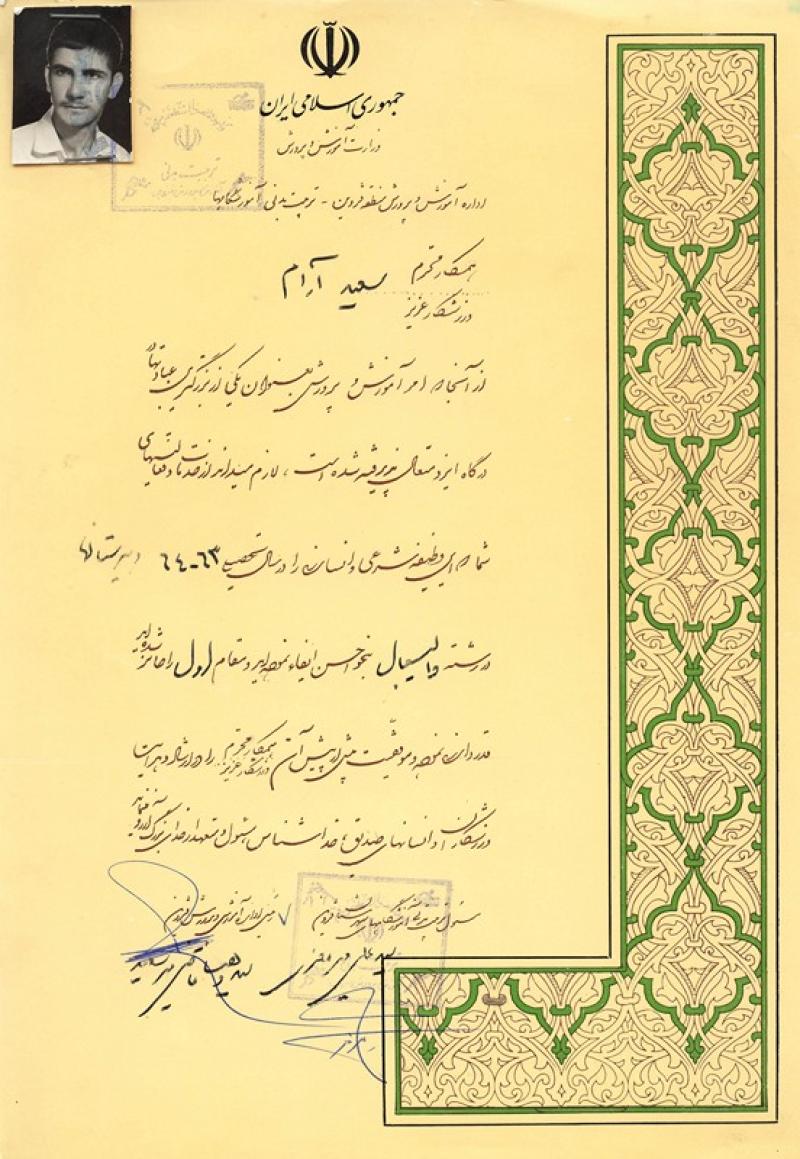 جمهوری اسلامی ایران
وزارت آموزش و پرورش
اداره آموزش و پرورش منطقه قزوین - تربیت بدنی آموزشگاهها
همکار محترم
ورزشکار عزیز
سعید آرام
از آنجا که امر آموزش و پرورش بعنوان یکی از بزرگترین عبادتها در
درگاه ایزد متعال پذیرفته شده است ، لازم میداند از خدمات و فعالیتهای
شما که این وظیفه شرعی و انسانی را در سال تحصیلی ٦٣-٦٤ دبیرستانها
در رشته والیبال بنحو احسن ایفاء نموده اید و مقام اول را حائز شده اید
قدردانی نموده و موفقیت بیش از پیش آن همکار محترم ورزشکار عزیز را در ارشاد و هدایت
ورزشکاران و انسانهای صدیق ، خداشناس ، مسئول و متعهد از خدای بزرگ آرزو
مسئول تربیت بدنی آموزشگاههای شهرستان قزوین
رئیس اداره آموزش و پرورش قزوین
تربیت بدنی